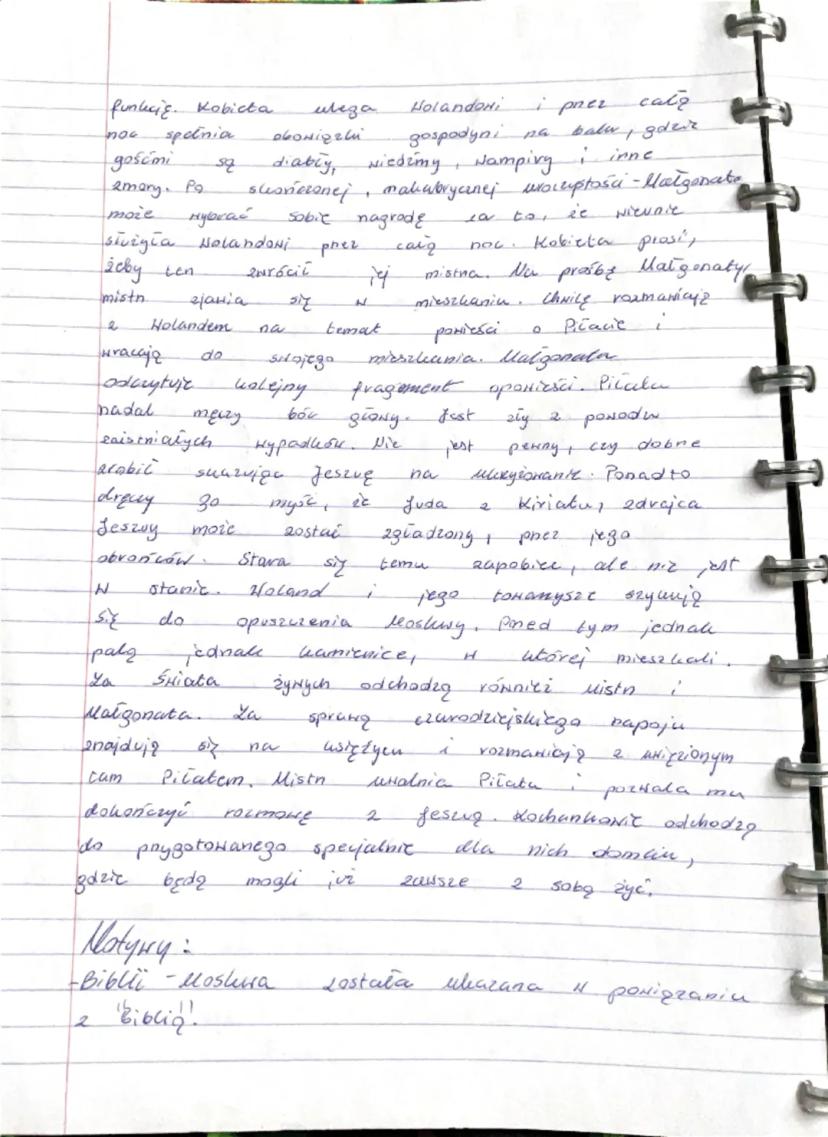 funkcję. Kobieta ulega Wolandowi i przez całą
noc spełnia obowiązki gospodyni na balu, gdzie
gośćmi są diabły, wiedźmy, wampiry i inne
zmory. Po skończonej, makabrycznej uroczystości - Małgorzata
może wybrać sobie nagrodę za to, że wiernie
służyła Wolandowi przez całą noc. Kobieta prosi,
żeby ten zwrócił jej mistrza. Na prośbę Małgorzaty,
mistrz zjawia się w mieszkaniu. Chwilę rozmawiają
z Wolandem na temat powieści o Piłacie i
wracają do swojego mieszkania. Małgorzata
odczytuje kolejny fragment opowieści. Piłata
nadal męczy ból głowy. Jest zły z powodu
zaistniałych wypadków. Nie jest pewny, czy dobrze
zrobił skazując Jeszuę na ukrzyżowanie. Ponadto
dręczy go myśl, że Juda z Kiriatu, zdrajca
Jeszuy może zostać zgładzony, przez jego
obrońców. Stara się temu zapobiec, ale nie jest
w stanie. Woland i jego towarzysze szykują
się do opuszczenia Moskwy. Przed tym jednak
palą jednak kamienice, w której mieszkali.
Ze świata żywych odchodzą również Mistrz i
Małgorzata. Za sprawą czarodziejskiego napoju
znajdują się na księżycu i rozmawiają z uwięzionym
tam Piłatem. Mistrz uwalnia Piłata i pozwala mu
dokończyć rozmowę z Jeszuą. Kochankowie odchodzą
do przygotowanego specjalnie dla nich domku,
gdzie będą mogli już zawsze z sobą żyć.
Motywy:
- Biblii - Moskwa została ukazana w powiązaniu
z "Biblią".